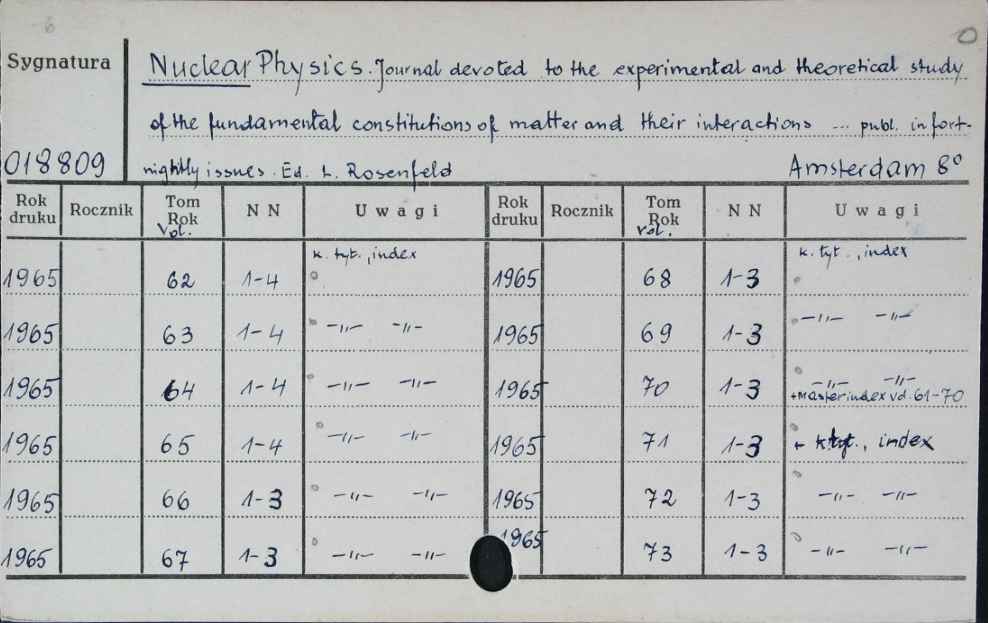 Sygnatura
Nuclear Physics. Journal devoted to the experimental and theoretical study
of the fundamental constitutions of matter and their interactions ... publ. in fort-
018809 nightly issues. Ed. L. Rosenfeld Amsterdam 8°
Rok druku Rocznik Tom Rok Vol. N N Uwagi Rok druku Rocznik Tom Rok Vol. N N Uwagi
1965 62 1-4 k. tyt., index 1965 68 1-3 k. tyt., index
1965 63 1-4 -"- -"- 1965 69 1-3 -"- -"-
1965 64 1-4 -"- -"- 1965 70 1-3 -"- -"- + masterindex vol. 61-70
1965 65 1-4 -"- -"- 1965 71 1-3 + k. tyt., index
1965 66 1-3 -"- -"- 1965 72 1-3 -"- -"-
1965 67 1-3 -"- -"- 1965 73 1-3 -"- -"-